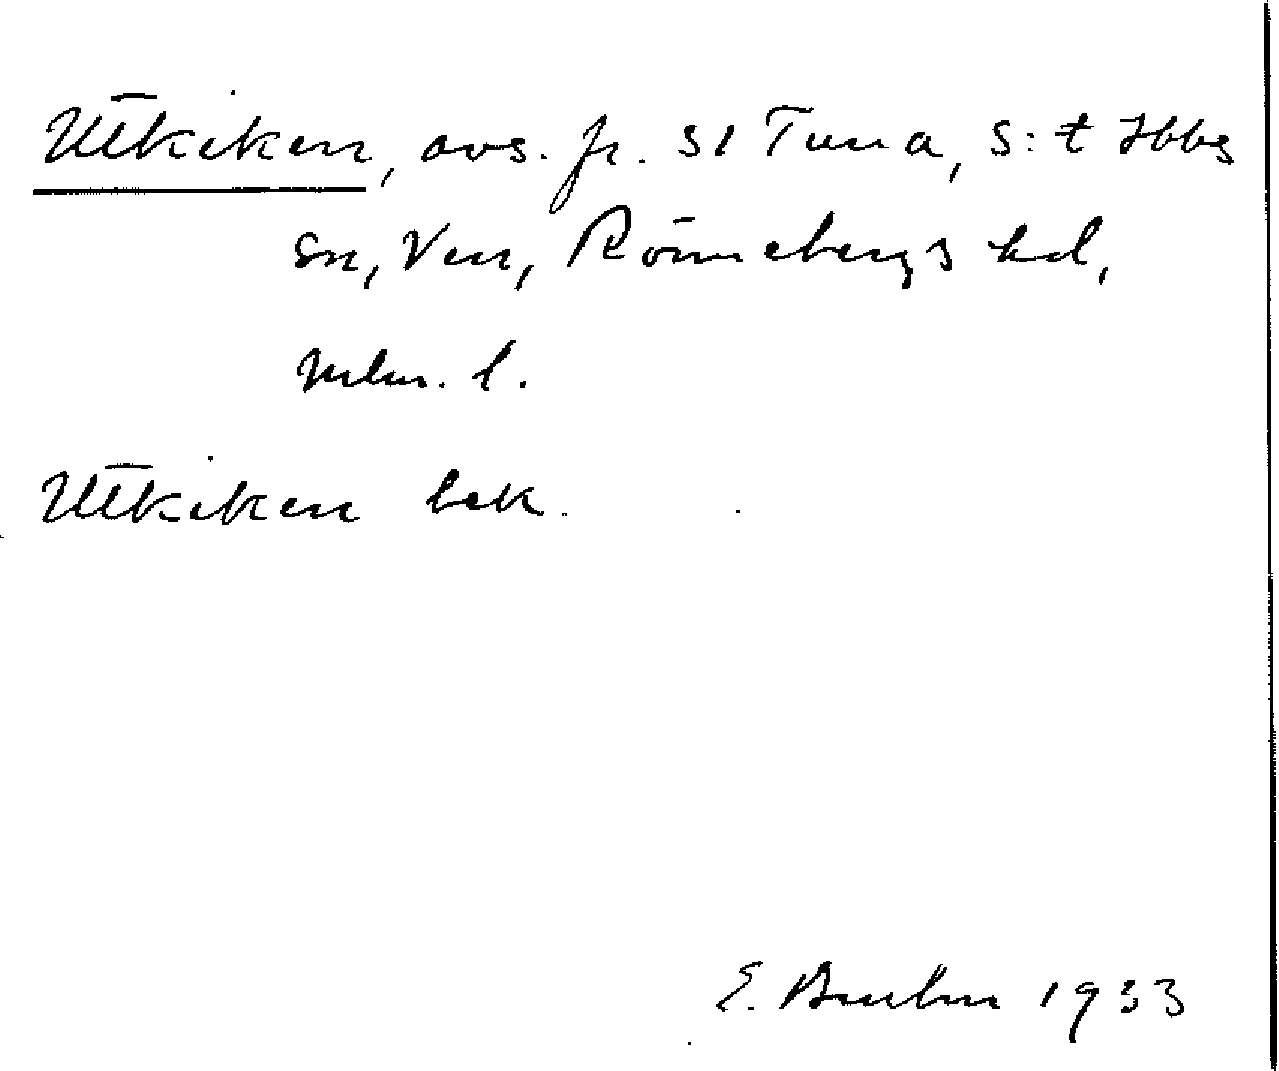 Utkiken, avs. fr. 31 Tuna, S:t Ibbs
sn, Ven, Rönnebergs hd,
Mlm. l.
Utkiken bek.
E. Bruhn 1933